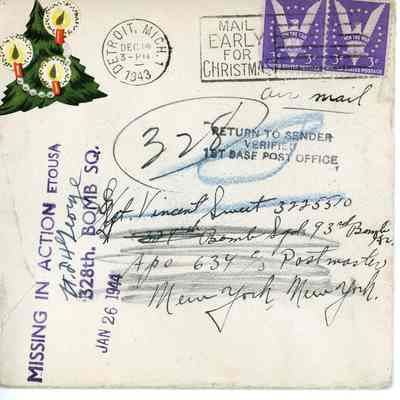 DETROIT, MICH. 1
DEC 14
3-PM
1943
MAIL
EARLY
FOR
CHRISTMAS
WIN THE WAR
3¢
UNITED STATES POSTAGE
WIN THE WAR
3¢
UNITED STATES POSTAGE
air mail
328
RETURN TO SENDER
VERIFIED
1ST BASE POST OFFICE
Sgt. Vincent Sweet 3225370
Bomb Sqd. 93rd Bomb
Apo 634 c/o Postmaster
New York, New York.
MISSING IN ACTION ETOUSA
328th. BOMB SQ.
JAN 26 1944